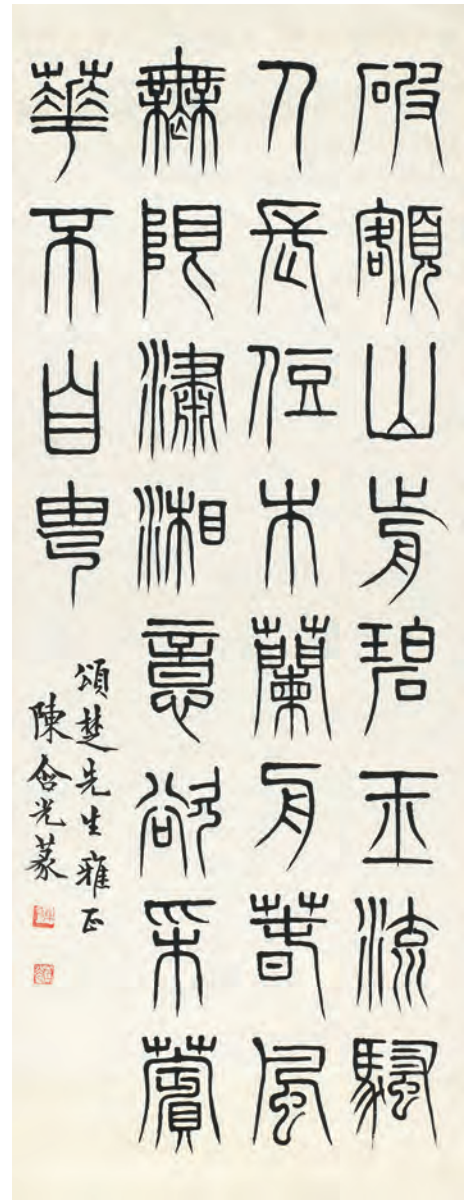 破額山前碧玉流騷
人長侸木蘭舟春風
無限瀟湘意欲采薲
華不自甹
頌楚先生雅正
陳含光篆